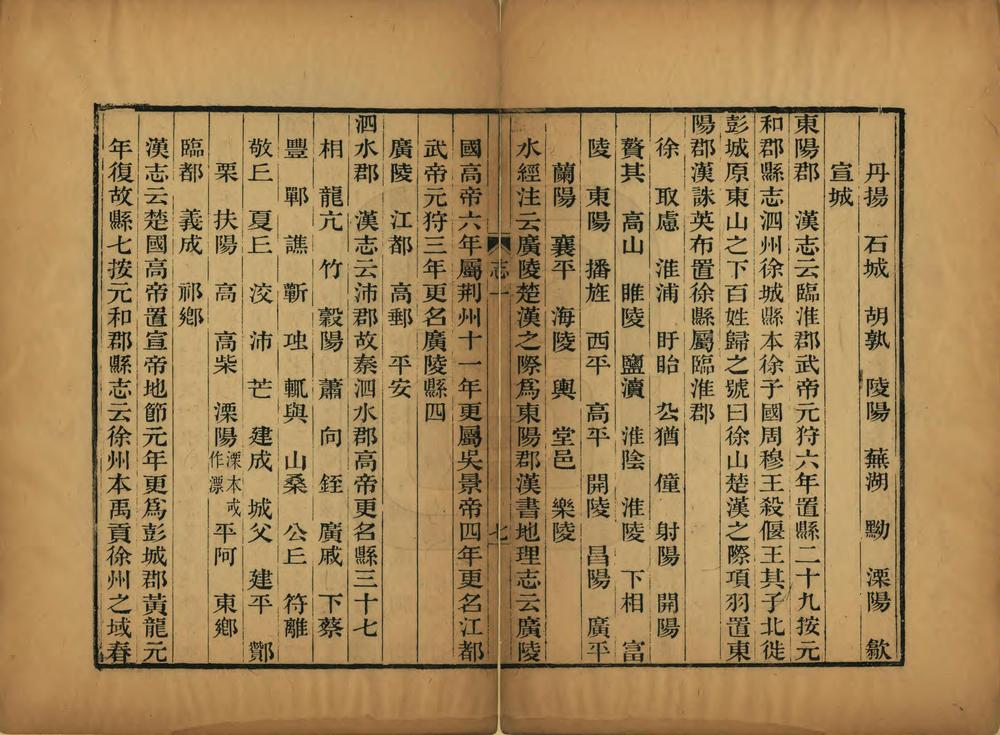 丹揚 石城 胡孰 陵陽 蕪湖 黝 溧陽 歙
宣城
東陽郡 漢志云臨淮郡武帝元狩六年置縣二十九按元
和郡縣志泗州徐城縣本徐子國周穆王殺偃王其子北徙
彭城原東山之下百姓歸之號曰徐山楚漢之際項羽置東
陽郡漢誅英布置徐縣屬臨淮郡
徐 取慮 淮浦 盱眙 厹猶 僮 射陽 開陽
贅其 高山 睢陵 鹽瀆 淮陰 淮陵 下相 富
陵 東陽 播旌 西平 高平 開陵 昌陽 廣平
蘭陽 襄平 海陵 輿 堂邑 樂陵
水經注云廣陵楚漢之際爲東陽郡漢書地理志云廣陵
志一
七
國高帝六年屬荆州十一年更屬吳景帝四年更名江都
武帝元狩三年更名廣陵縣四
廣陵 江都 高郵 平安
泗水郡 漢志云沛郡故秦泗水郡高帝更名縣三十七
相 龍亢 竹 穀陽 蕭 向 銍 廣戚 下蔡
豐 鄲 譙 蘄 䖟 輒與 山桑 公丘 符離
敬丘 夏丘 洨 沛 芒 建成 城父 建平 酇
栗 扶陽 高 高柴 溧陽溧本或作漂 平阿 東鄉
臨都 義成 祁鄉
漢志云楚國高帝置宣帝地節元年更爲彭城郡黃龍元
年復故縣七按元和郡縣志云徐州本禹貢徐州之域春